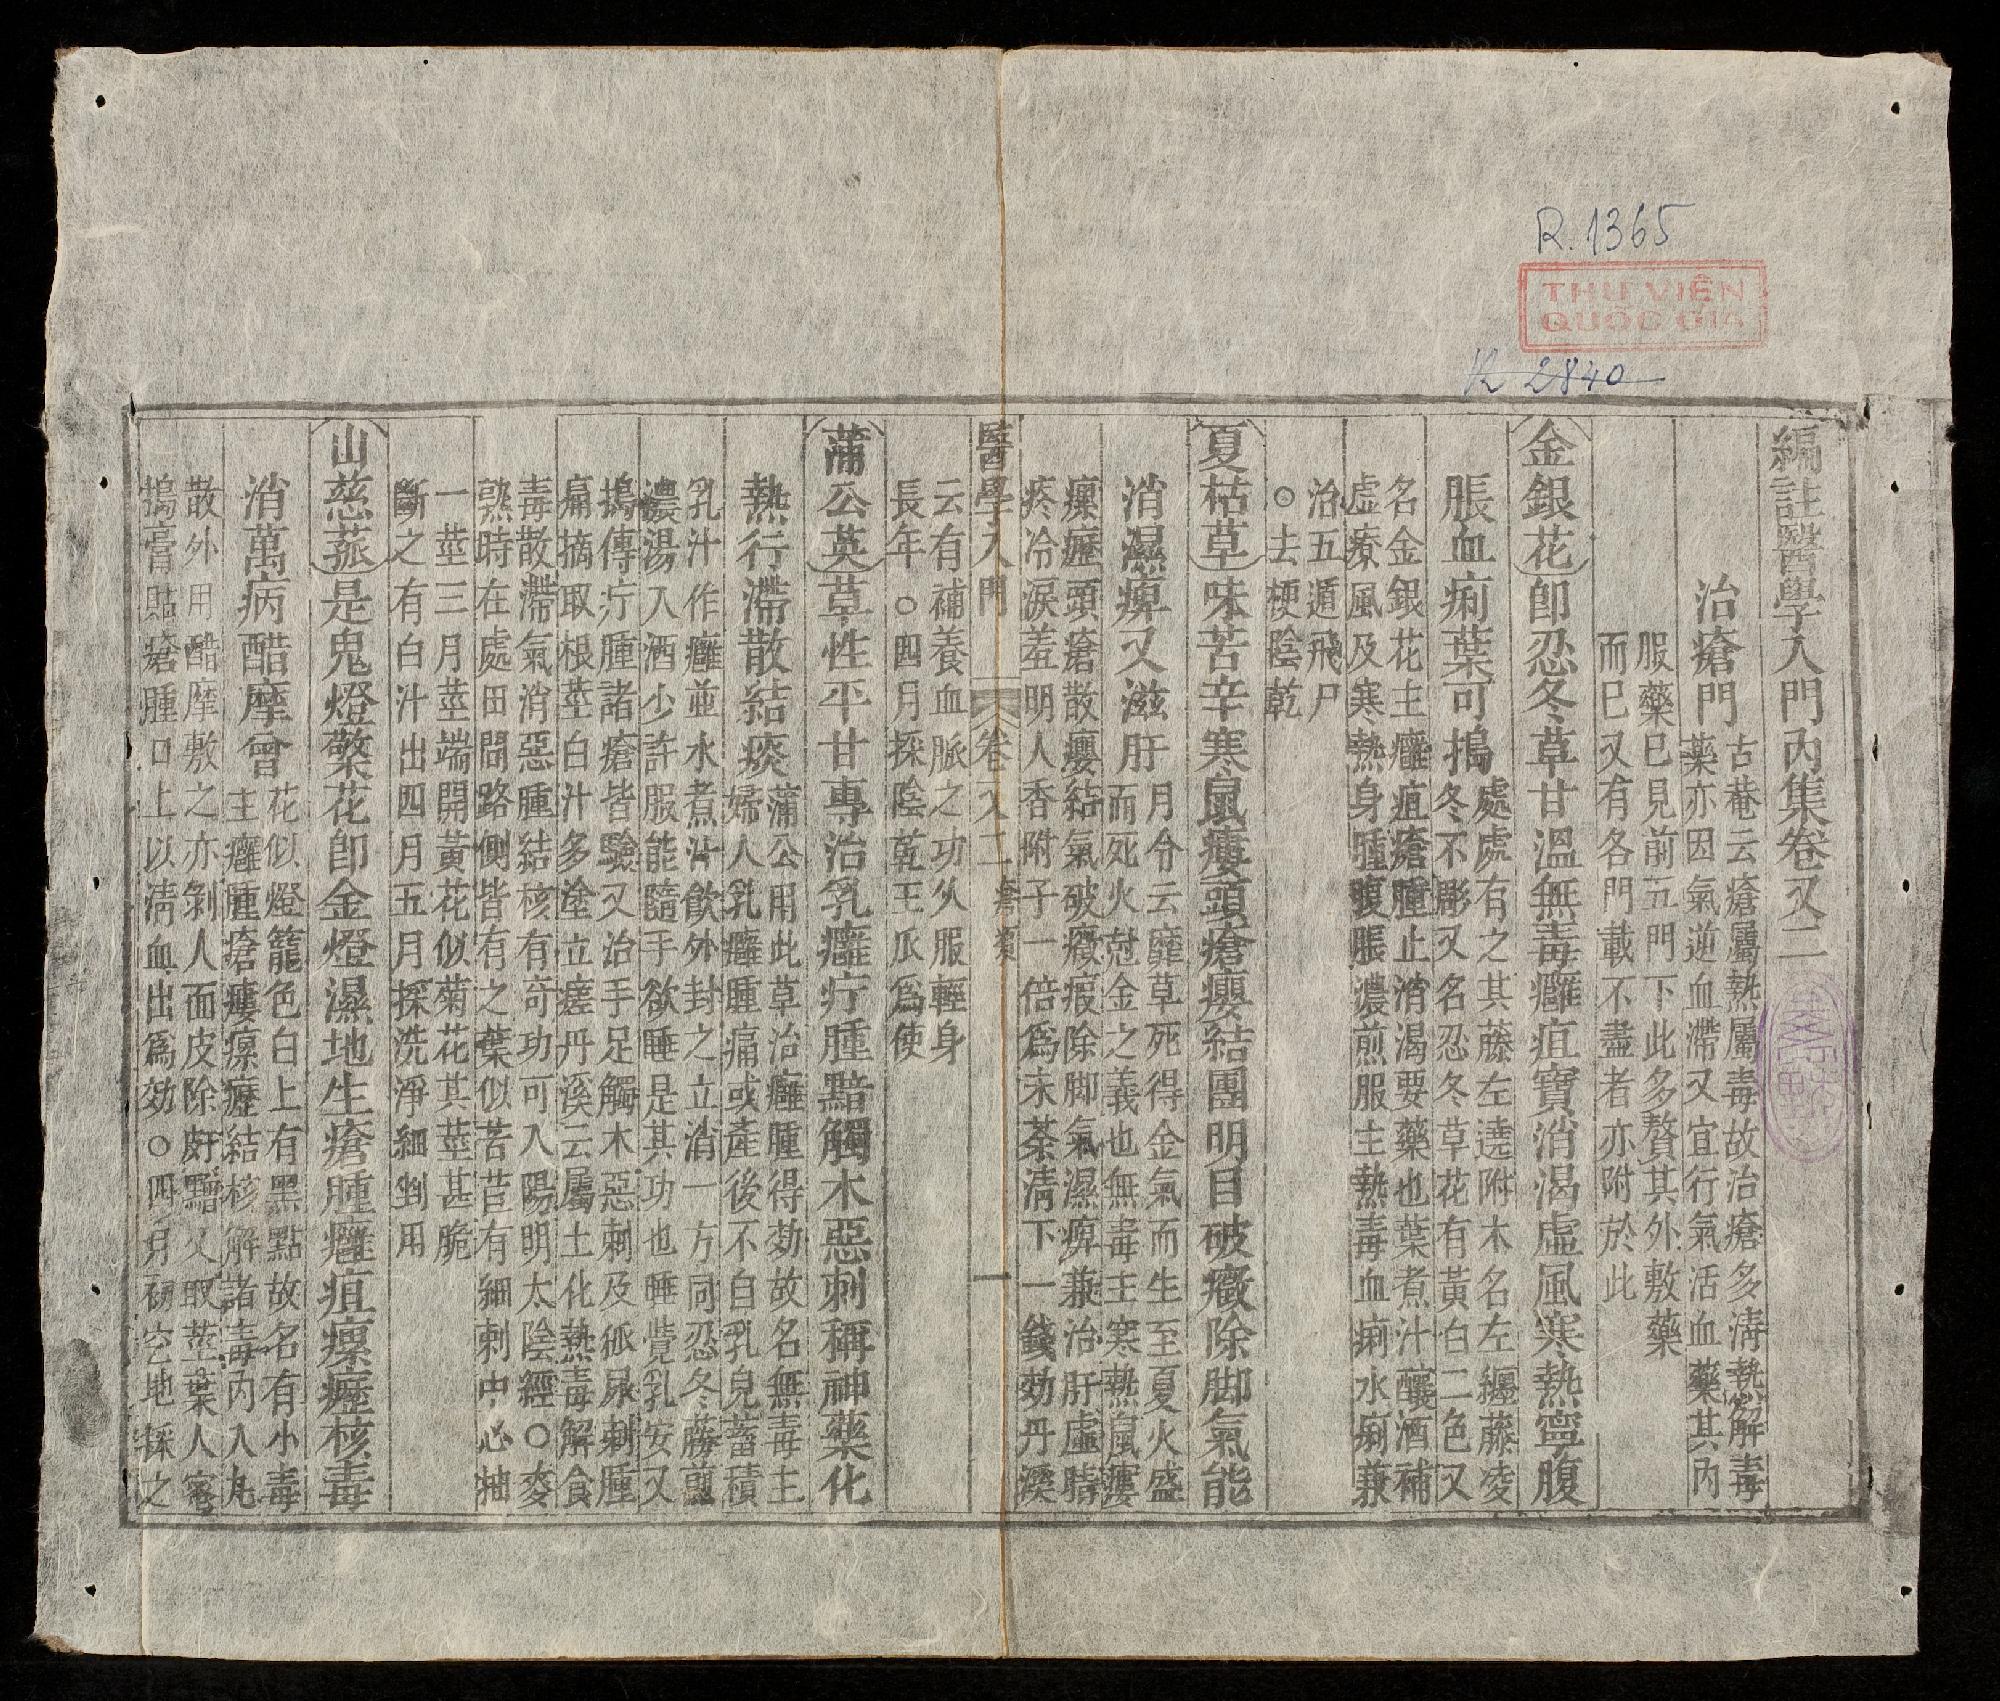 R.1365
THƯ VIỆN
QUỐC GIA
K 2840
編註醫學入門內集卷又二
治瘡門
古菴云瘡屬熱屬毒故治瘡多淸熱解毒
藥亦因氣逆血滯又宜行氣活血藥其內
服藥已見前五門下此多贅其外敷藥
而已又有各門載不盡者亦附於此
金銀花卽忍冬草甘溫無毒癰疽寶消渴虛風寒熱寧腹
脹血痢葉可搗
處處有之其藤左遶附木名左纏藤凌
冬不彫又名忍冬草花有黃白二色又
名金銀花主癰疽瘡腫止消渴要藥也葉煮汁釀酒補
虛療風及寒熱身腫腹脹濃煎服主熱毒血痢水痢兼
治五遁飛尸
○去梗陰乾
夏枯草味苦辛寒鼠瘻頭瘡癭結團明目破癥除脚氣能
消濕痺又滋肝
月令云蘼草死得金氣而生至夏火盛
而死火尅金之義也無毒主寒熱鼠瘻
瘰癧頭瘡散癭結氣破癥瘕除脚氣濕痺兼治肝虛睛
疼冷淚羞明人香附子一倍爲末茶淸下一錢効丹溪
醫學入門
卷又二
瘡類
一
云有補養血脈之功久服輕身
長年○四月採陰乾王瓜爲使
蒲公英草性平甘專治乳癰疔腫黯觸木惡刺稱神藥化
熱行滯散結痰
蒲公用此草治癰腫得効故名無毒主
婦人乳癰腫痛或產後不自乳兒蓄積
乳汁作癰並水煮汁飮外封之立消一方同忍冬藤煎
濃湯入酒少許服能隨手欲睡是其功也睡覺乳安又
搗傅疔腫諸瘡皆驗又治手足觸木惡刺及狐尿刺腫
痛摘取根莖白汁多塗立瘥丹溪云屬土化熱毒解食
毒散滯氣消惡腫結核有奇功可入陽明太陰經○麥
熟時在處田間路側皆有之葉似苦苣有細刺中心抽
一莖三月莖端開黃花似菊花其莖甚脆
斷之有白汁出四月五月採洗淨細剉用
山慈菰是鬼燈檠花卽金燈濕地生瘡腫癰疽瘰癧核毒
消萬病醋摩曾
花似燈籠色白上有黑點故名有小毒
主癰腫瘡瘻瘰癧結核解諸毒內入丸
散外用醋摩敷之亦剝人面皮除皯䵟又取莖葉人蜜
搗膏貼瘡腫口上以淸血出爲効○四月初空地採之